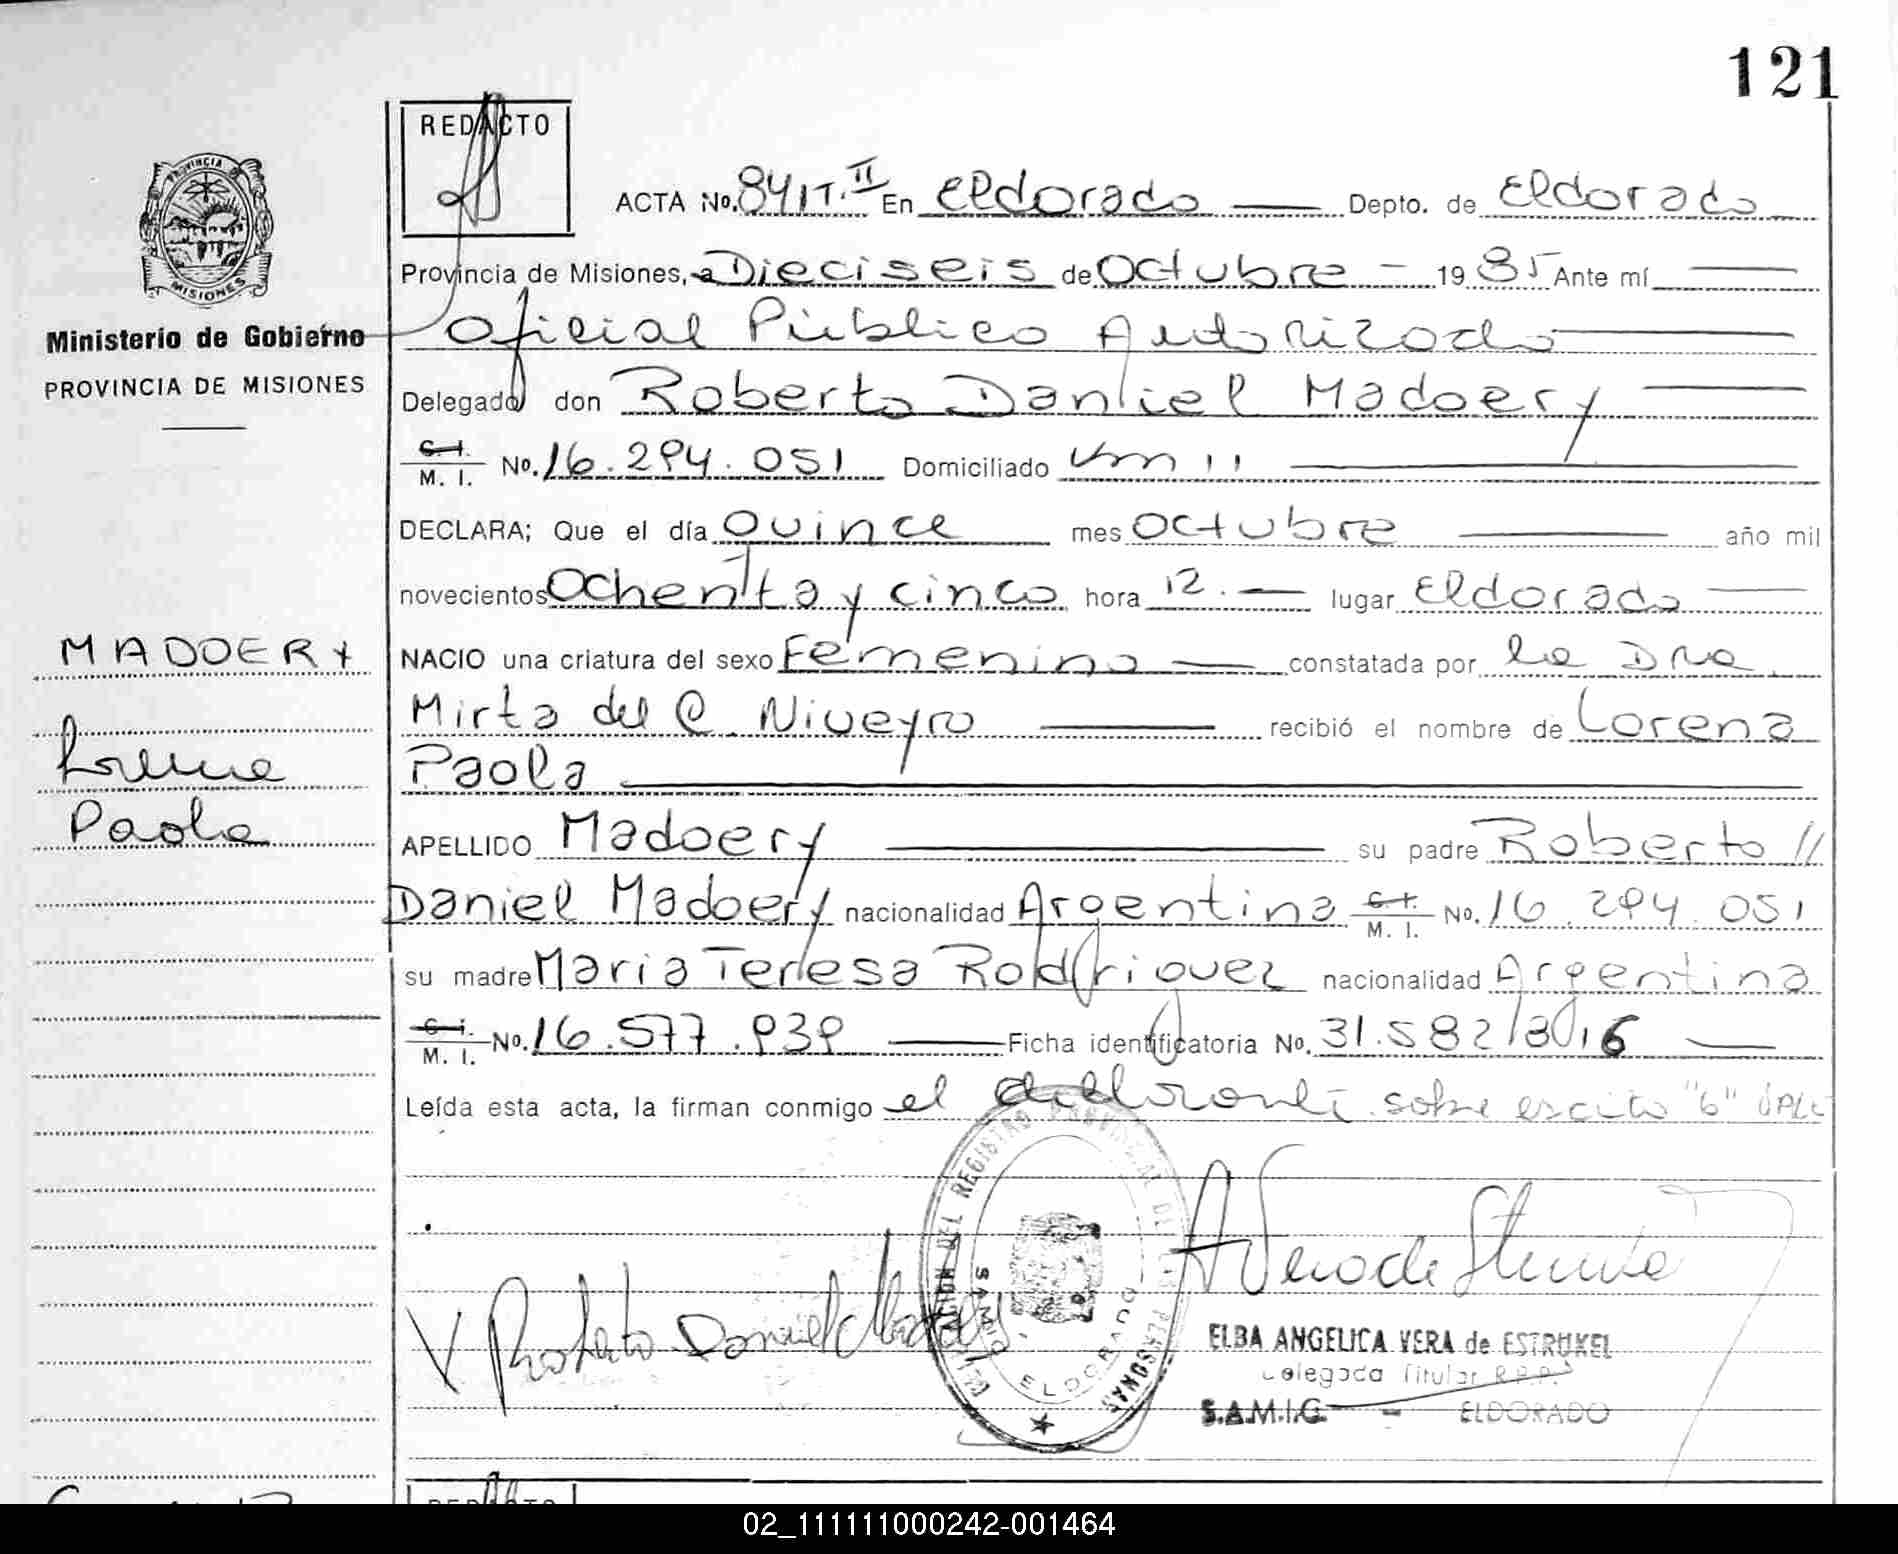 121
REDACTO
ACTA No. 841T. II En Eldorado Depto. de Eldorado
Provincia de Misiones, a Dieciseis de Octubre 1985 Ante mí
Oficial Público Autorizado
Delegado don Roberto Daniel Madoery
C.I. M. I. No. 16.294.051 Domiciliado Km 11
DECLARA; Que el día Quince mes Octubre año mil
novecientos Ochenta y cinco hora 12.- lugar Eldorado
NACIO una criatura del sexo Femenino constatada por la Dra.
Mirta del C. Niveyro recibió el nombre de Lorena
Paola
APELLIDO Madoery su padre Roberto //
Daniel Madoery nacionalidad Argentina C.I. M. I. No. 16.294.051
su madre Maria Teresa Rodriguez nacionalidad Argentina
C.I. M. I. No. 16.577.939 Ficha identificatoria No. 31.582/816
Leída esta acta, la firman conmigo el sobre escrito "6" vale
Roberto Daniel Madoery
DEL REGISTRO PROVINCIAL DE LAS PERSONAS
SAMIC
ELDORADO
A Vera de
ELBA ANGELICA VERA de ESTRUKEL
Delegada Titular R.P.P.
S.A.M.I.C. - ELDORADO
PROVINCIA
MISIONES
Ministerio de Gobierno
PROVINCIA DE MISIONES
MADOERY
Lorena
Paola
REDACTO
02_111111000242-001464